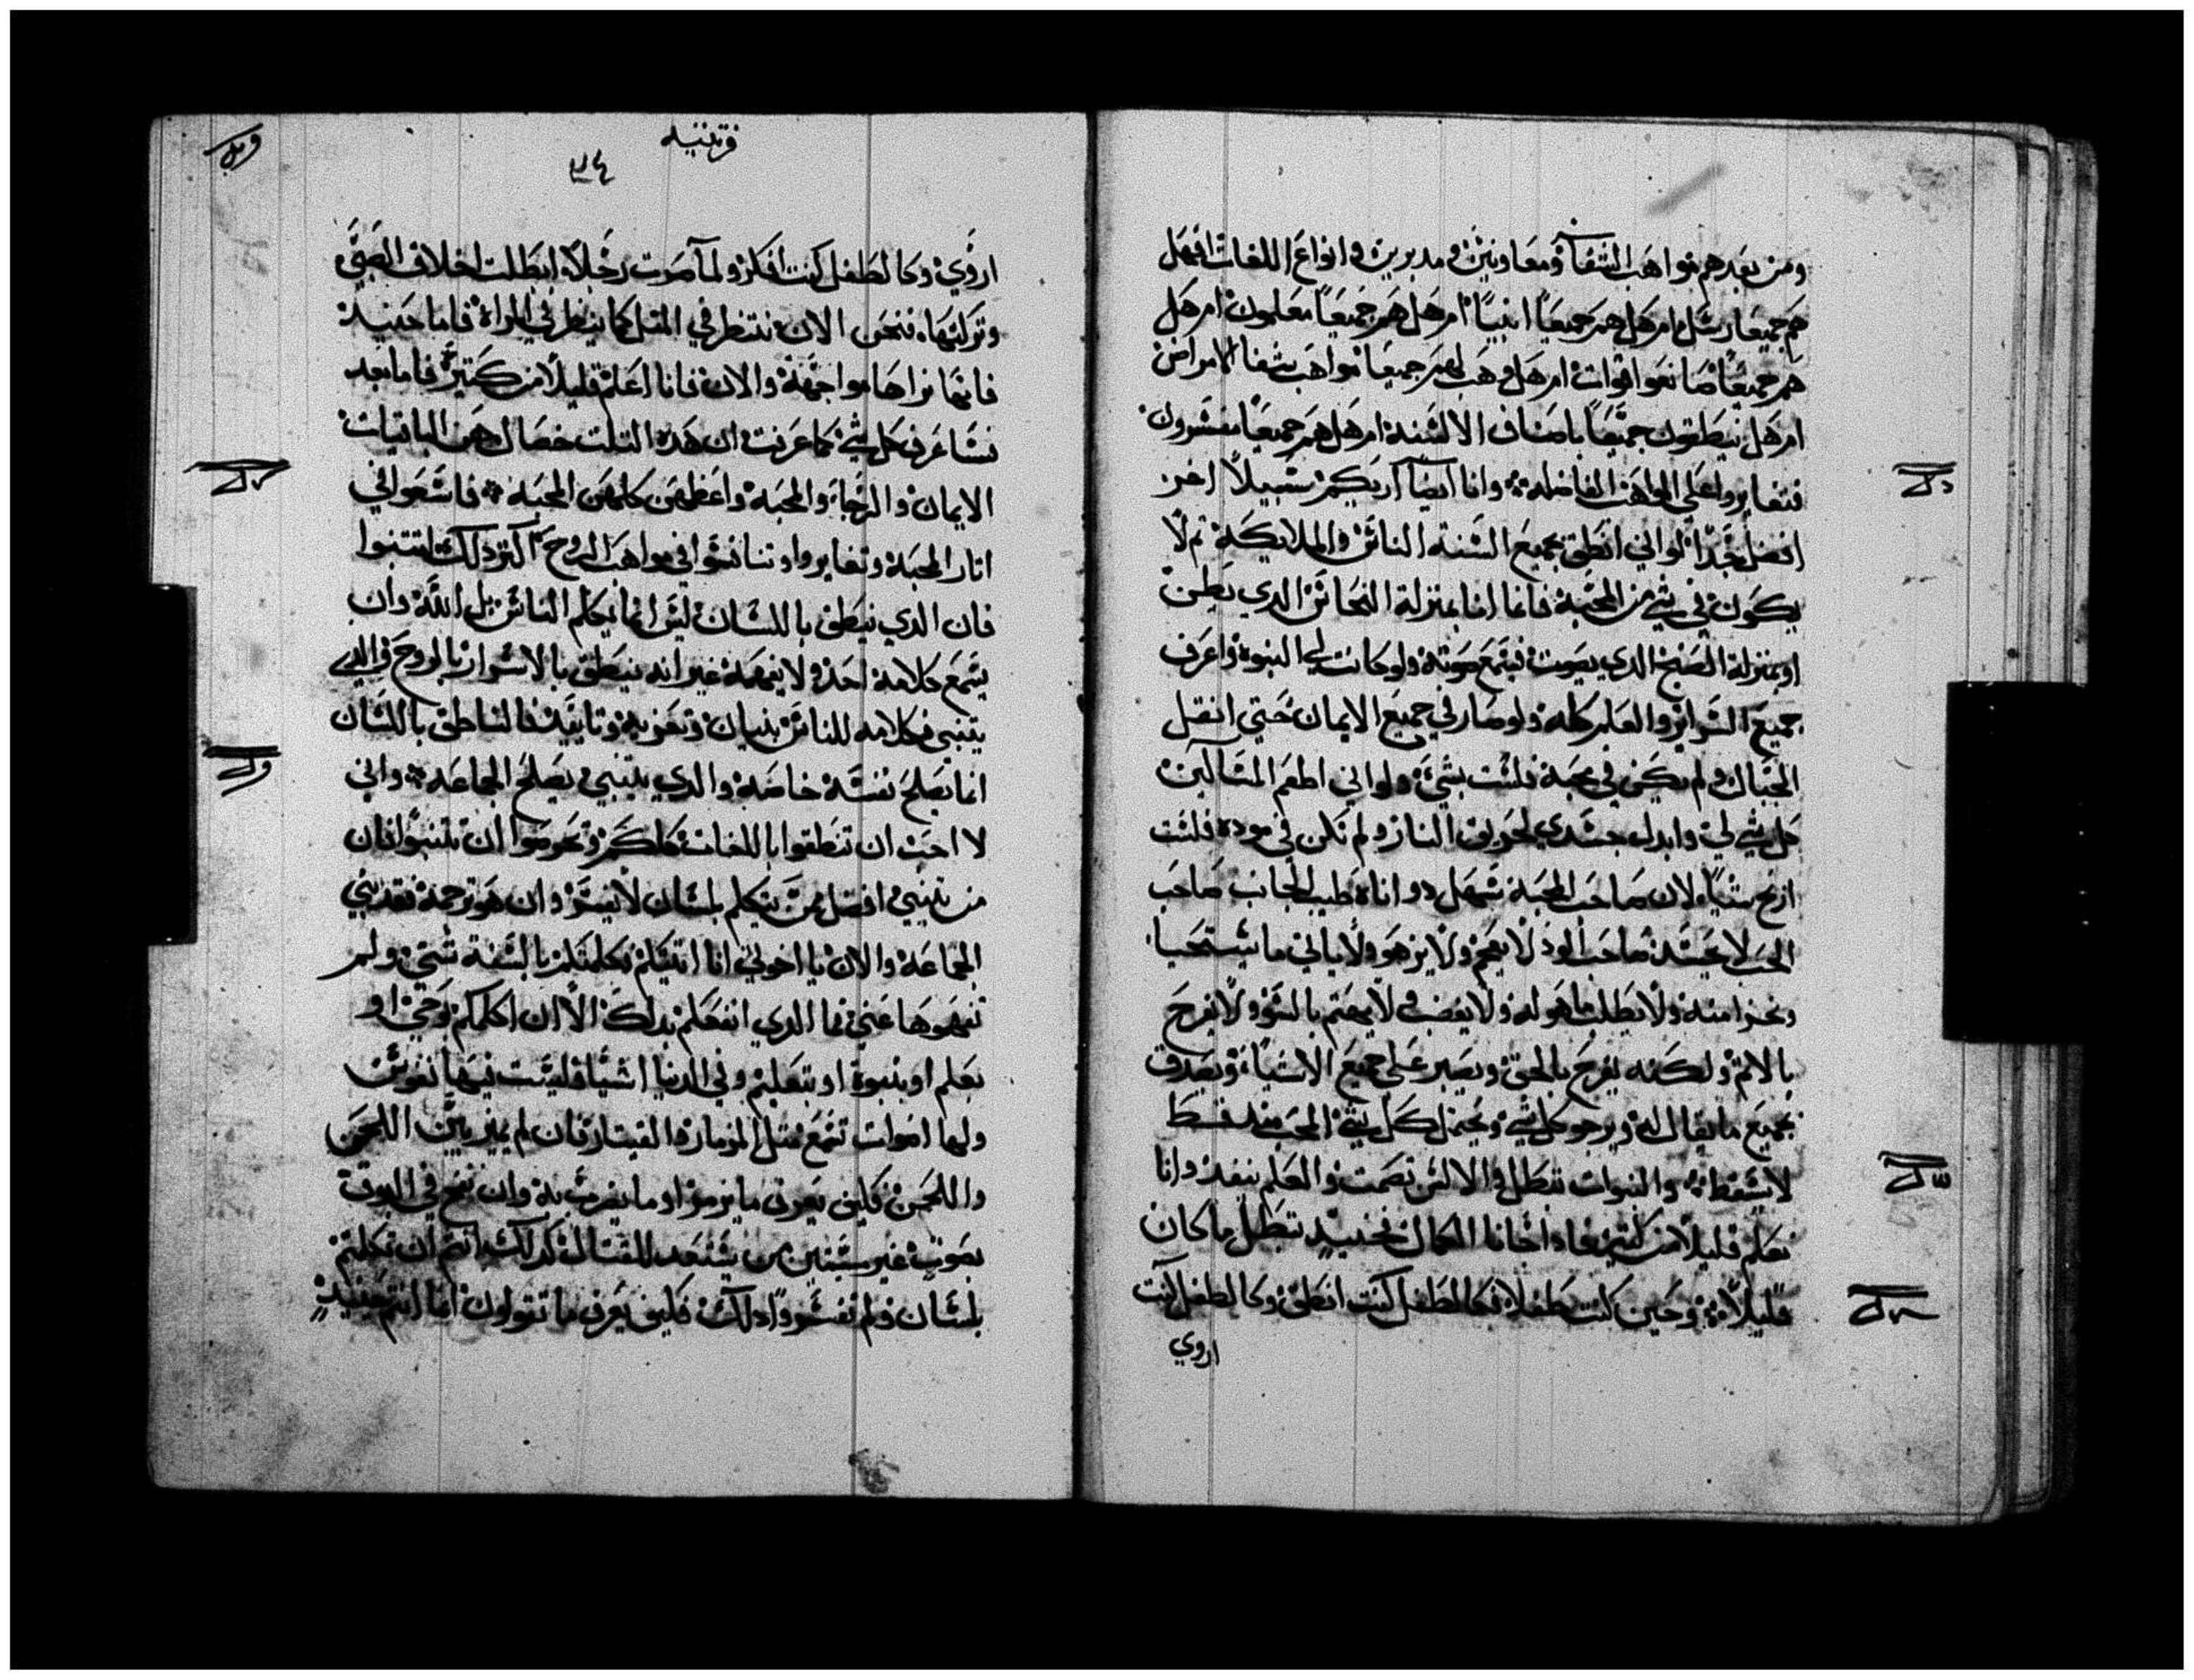 ومن بعدهم مواهب الشفآء ومعاونين ومدبرين وانواع اللغات افهل
هم جميعا رسل ام هل هم جميعًا انبيآ ام هل هم جميعًا معلمون ام هل
هم جميعًا صانعوا قوات ام هل وهب لهم جميعا مواهب شفا الامراض
ام هل ينطقون جميعًا باصناف الالسنة ام هل هم جميعًا مفسرون
فتغايروا على المواهب الفاضله وانا ايضًا اريكم سبيلًا اخر
افضل جدًا لواني انطق بجميع السنة الناس والملايكة ثم لا
يكون في شي من المحبة فانما انا بمنزلة النحاس الدي يطن
او بمنزلة الصنج الدي يصوت فيسمع صوته ولو كانت لي النبوة واعرف
جميع السراير والعلم كله ولو صار لي جميع الايمان حتى انقل
الجبال ولم يكن في محبة فلست بشي ولو اني اطعم المساكين
كل شي لي وابدل جسدي لحريق النار ولم تكن في مودة فلست
اربح شيا لان صاحب المحبة سهل دو اناة طيب الجانب صاحب
الحب لا يحسد صاحب الود لا يعجز ولا يزهو ولا ياتي ما يستحيا
ويخزا منه ولا يطلب ما هو له ولا يغضب ولا يهتم بالسؤ ولا يفرح
بالاتم ولكنه يفرح بالحق ويصبر على جميع الاشياء ويصدق
بجميع ما يقال له ويرجو كل شي ويحتمل كل شي المحب منذ قط
لا يسقط والنبوات تبطل والالسن تصمت والعلم ينفد وانا
نعلم قليلًا من كثير فاذا اتانا الكمال فحينيدٍ تبطل ما كان
قليلًا وحين كنت طفلًا فكالطفل كنت انطق وكالطفل كنت
اروي
قرنتيه
٣٤
اروي وكالطفل كنت افكر ولمآ صرت رجلًا ابطلت اخلاق الصبي
وتركتها فنحن الان ننتظر في المتل كما ينظر في المراة فاما حنيد
فانها نراها مواجهة والان فانا اعلم قليلًا من كتير فاما بعد
نسا عرف كل شي كما عرفت ان هده التلت خصال هن الباقيات
الايمان والرجاء والمحبة واعظمهن كلهن المحبة فاسعوا في
اتار المحبة وتغايروا وتنافسوا في مواهب الروح اكتر دلك لتتنبوا
فان الدي ينطق باللسان ليس انما يكلم الناس بل الله وان
يسمع كلامه احد ولا يفهمه غير انه ينطق بالاسرار بالروح والدي
يتنبى فكلامه للناس بنيان وتعزية وتاييد فالناطق باللسان
انما يصلح نفسه خاصة والدي يتنبي يصلح الجماعة واني
لا احب ان تنطقوا باللغات كلكم وتحرصوا ان تتنبوا فان
من تنبي افضل ممن يتكلم بلسان لا يفسر وان هو ترجمه فقد بني
الجماعة والان يا اخوتي انا اتيتكم فكلمتكم بالسنة شتي ولم
تفهموها عني فما الدي انفعكم بدلك الا ان اكلمكم بوحي او
بعلم او بنبوة او بتعليم وفي الدنيا اشيا فليست فيها نفوس
ولها اصوات تسمع متل المزمار والقيتار فان لم يميز بين اللحن
واللحن فكيف يعرف ما يزمر او ما يضرب به وان نفخ في البوق
بصوت غير مستبين من يستعد للقتال كدلك انتم ان تكلمتم
بلسان ولم تفسروا دلك فكيف يعرف ما تقولون انما انتم حنيدٍ